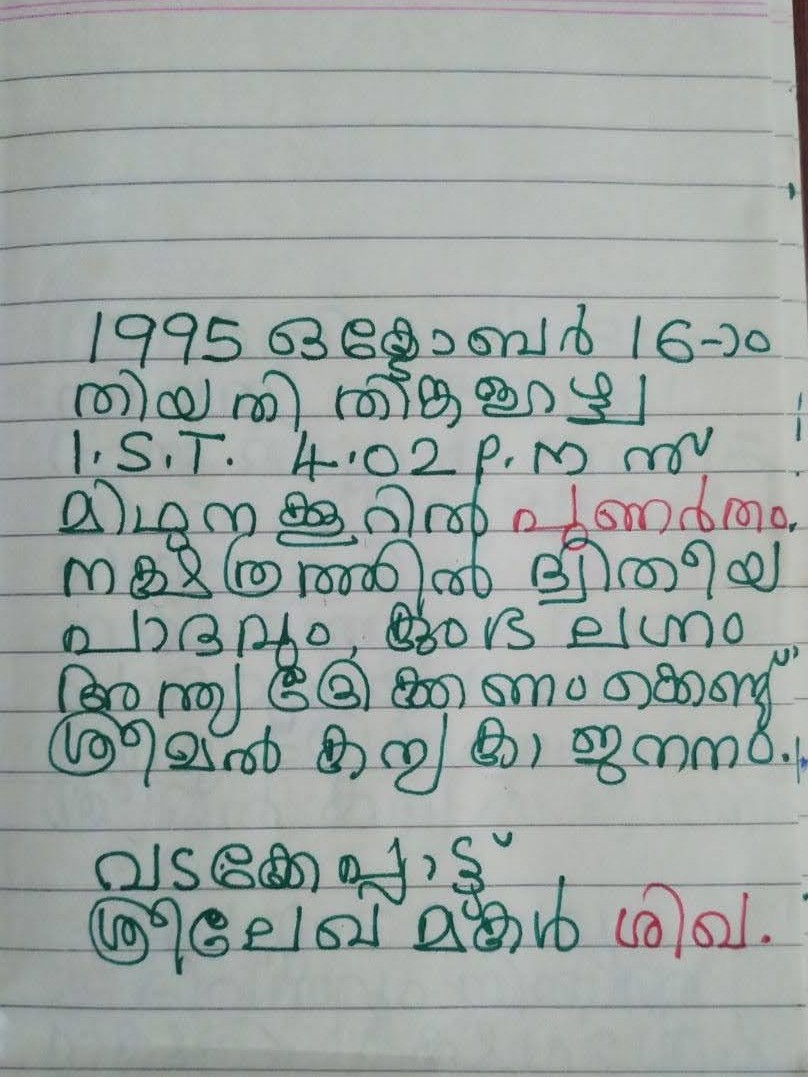 1995 ഒക്ടോബർ 16-ാം
തിയതി തിങ്കളാഴ്ച
I.S.T. 4.02 P.M ന്ന്
മിഥുനക്കൂറിൽ പുണർതം
നക്ഷത്രത്തിൽ ദ്വിതീയ
പാദവും, കുംഭ ലഗ്നം
അന്ത്യ ദ്രേക്കണം കൊണ്ട്
ശ്രീമൽ കന്യകാ ജനനം.
വടക്കേപ്പാട്ട്
ശ്രീലേഖ മകൾ ശിഖ.